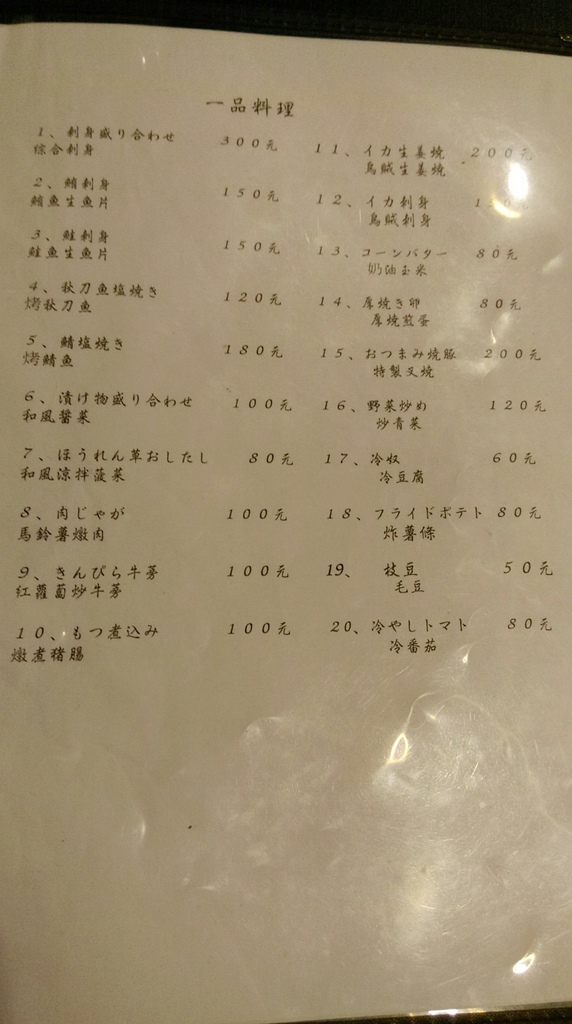 一品料理
1、刺身盛り合わせ 300元
綜合刺身
2、鮪刺身 150元
鮪魚生魚片
3、鮭刺身 150元
鮭魚生魚片
4、秋刀魚塩焼き 120元
烤秋刀魚
5、鯖塩焼き 180元
烤鯖魚
6、漬け物盛り合わせ 100元
和風醬菜
7、ほうれん草おしたし 80元
和風涼拌菠菜
8、肉じゃが 100元
馬鈴薯燉肉
9、きんぴら牛蒡 100元
紅蘿蔔炒牛蒡
10、もつ煮込み 100元
燉煮豬腸
11、イカ生姜焼 200元
烏賊生姜燒
12、イカ刺身
烏賊刺身
13、コーンバター 80元
奶油玉米
14、厚焼き卵 80元
厚燒煎蛋
15、おつまみ焼豚 200元
特製叉燒
16、野菜炒め 120元
炒青菜
17、冷奴 60元
冷豆腐
18、フライドポテト 80元
炸薯條
19、 枝豆 50元
毛豆
20、冷やしトマト 80元
冷番茄